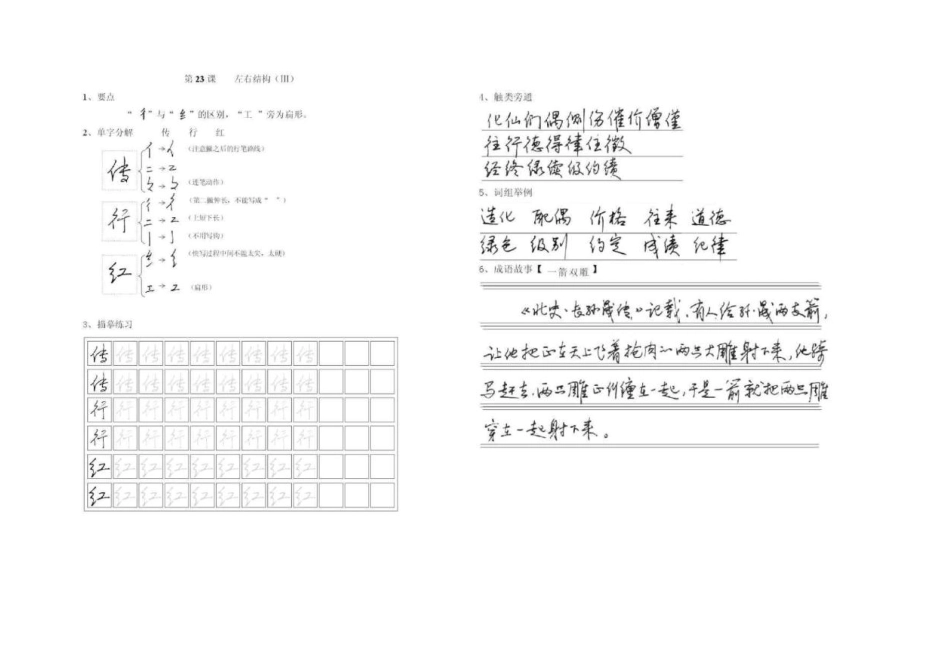 第 23 课 左右结构（III）
1、要点
“彳”与“纟”的区别，“工 ”旁为扁形。
2、单字分解 传 行 红
传
（注意撇之后的行笔路线）
（连笔动作）
行
（第二撇伸长，不能写成“ ”）
（上短下长）
（不用写钩）
红
（快写过程中间不能太实，太硬）
（扁形）
3、描摹练习
传 传 传 传 传 传 传 传 传
传 传 传 传 传 传 传 传 传
行 行 行 行 行 行 行 行 行
行 行 行 行 行 行 行 行 行
红 红 红 红 红 红 红 红 红
红 红 红 红 红 红 红 红 红
4、触类旁通
化仙们偶侧伤催价僧僅
往行德得律住徵
经终绿续级约绩
5、词组举例
造化 配偶 价格 往来 道德
绿色 级别 约定 成绩 纪律
6、成语故事【 一箭双雕 】
《北史·长孙晟传》记载，有人给孙晟两支箭，
让他把正在天上飞着抢肉的两只大雕射下来，他骑
马赶去，两只雕正纠缠在一起，于是一箭就把两只雕
穿在一起射下来。